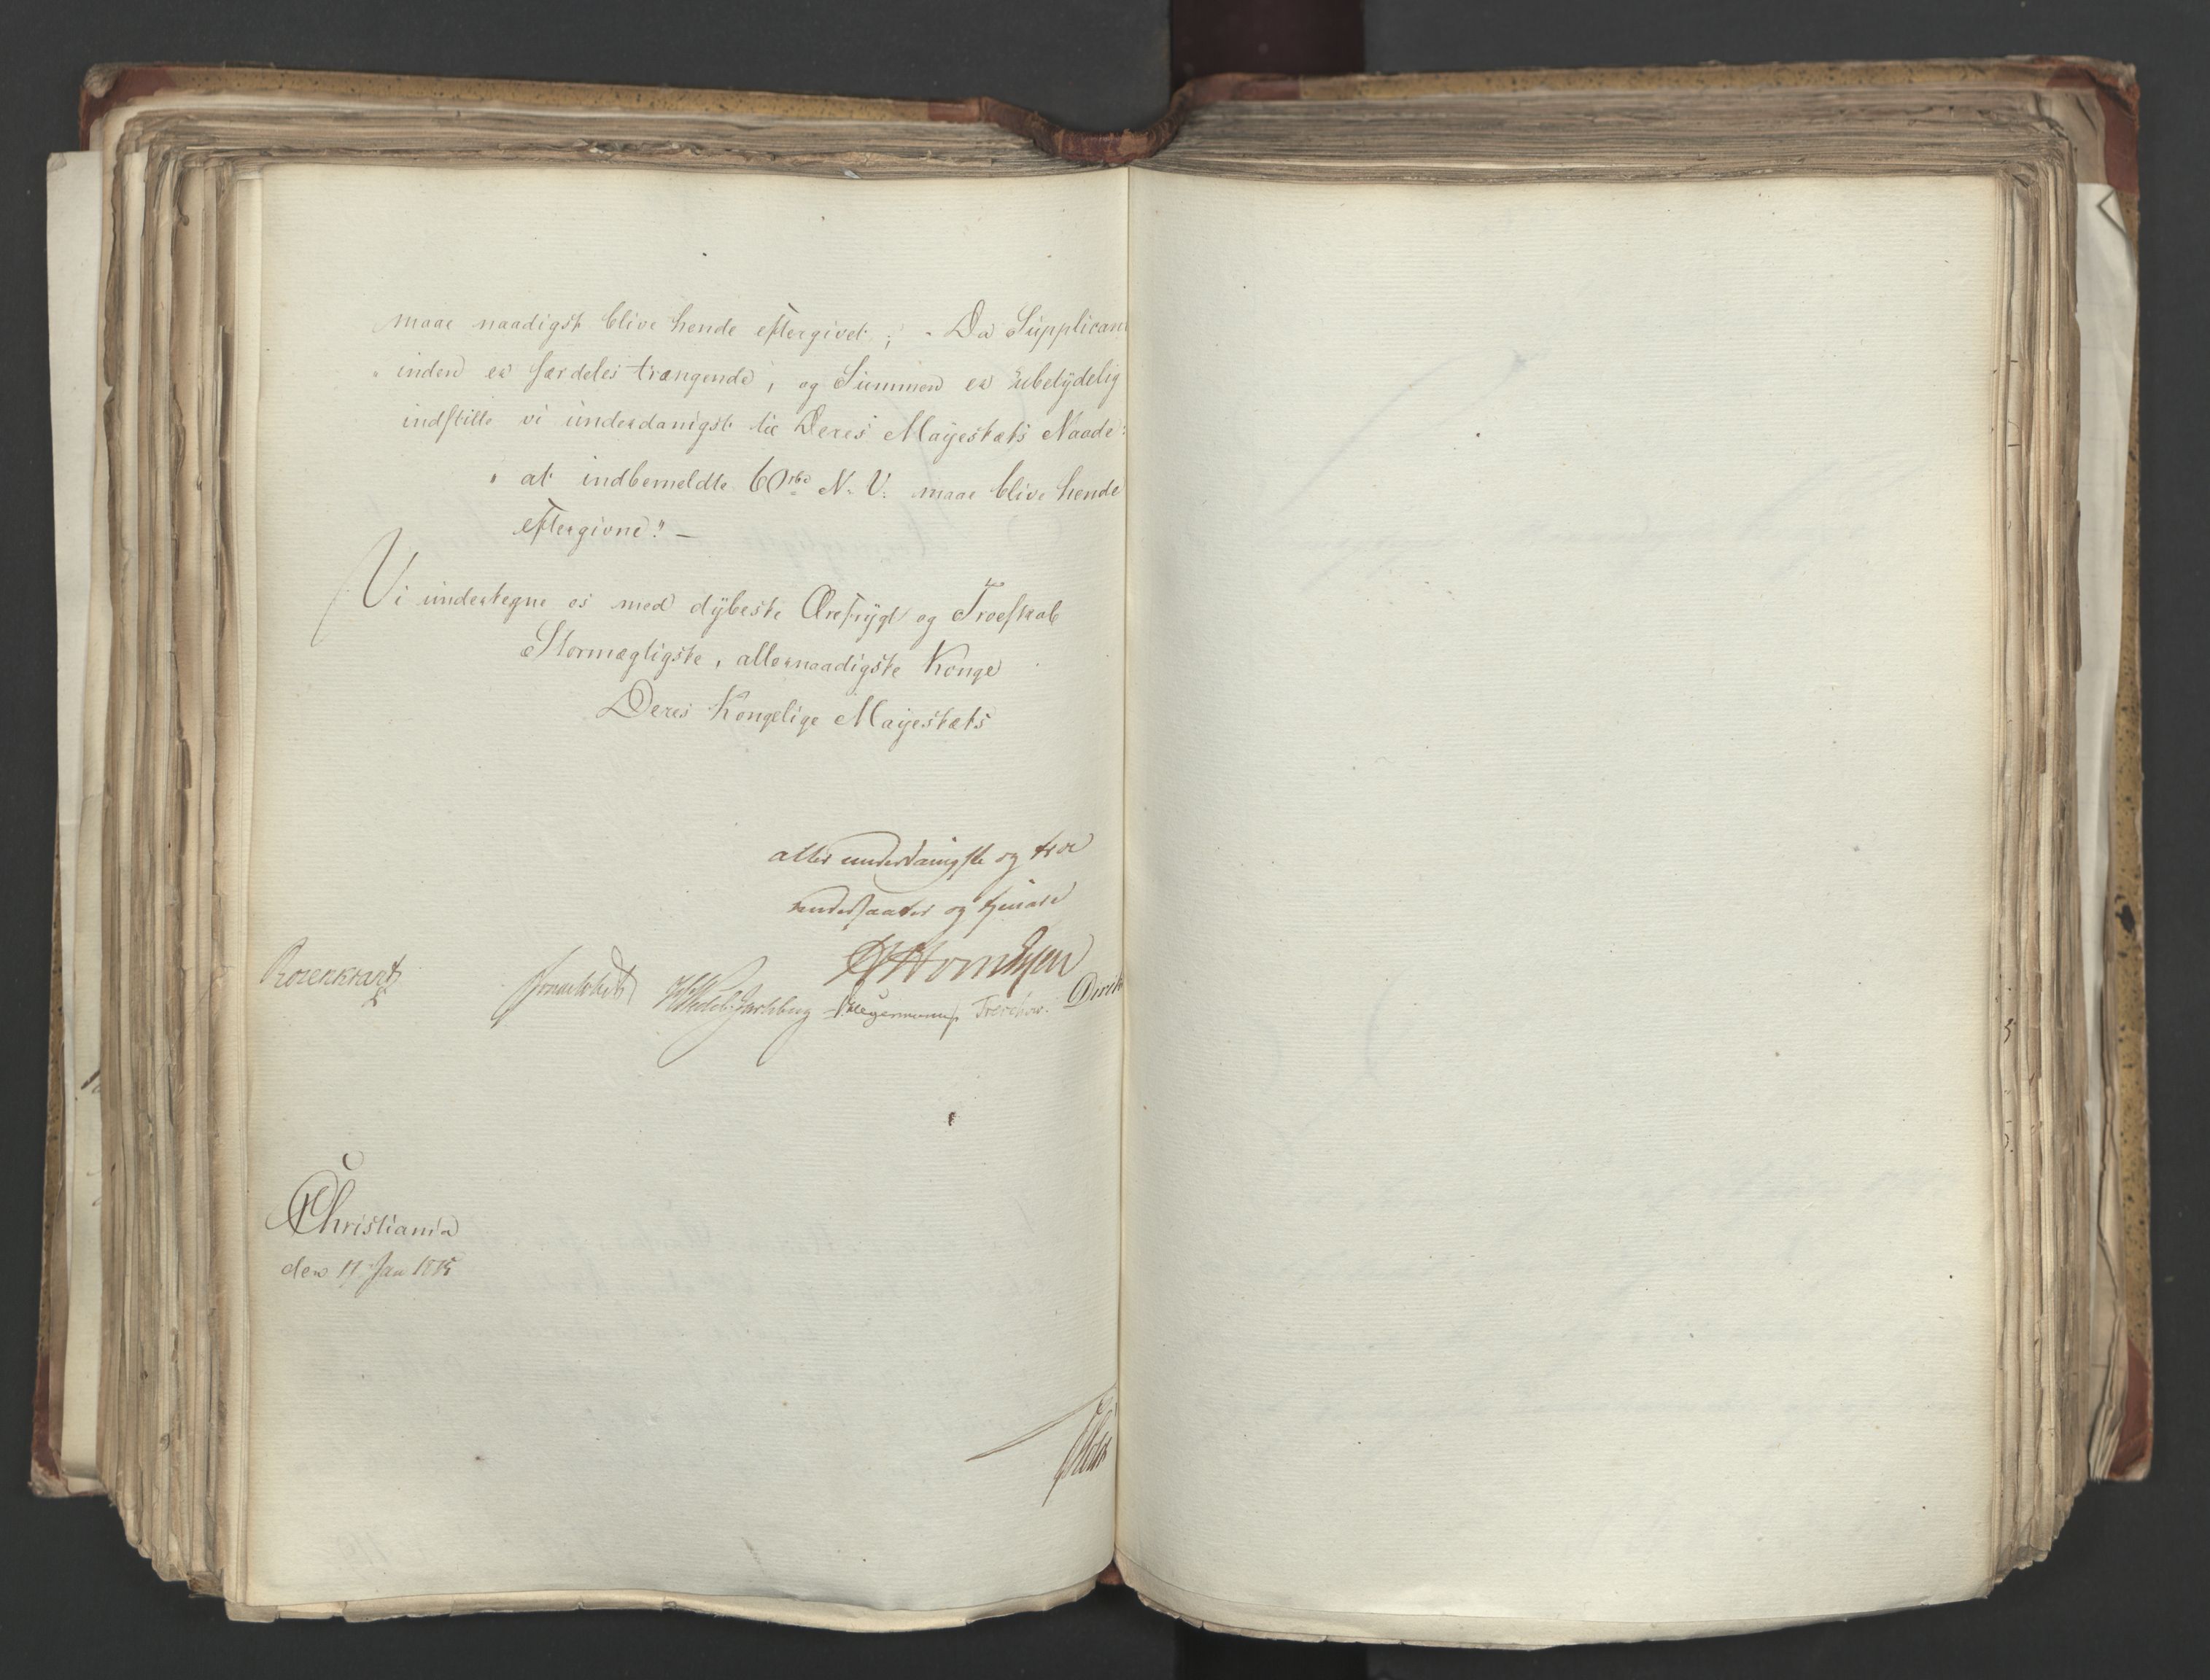 maae naadigst blive hende eftergivet; - Da Supplicant
inden er særdeles trængende, og Summen er ubetydelig
indstille vi underdanigst til Deres Mayestæts Naade:
" at indbemeldte 60 rbd N. V. maae blive hende
eftergivne". —
Vi undertegne os med dybeste Ærefrygt og Troeskab
Stormægtigste, allernaadigste Konge
Deres Kongelige Mayestæts
allerunderdanigste og troe
undersaatter og tjenere
Sommerhjelm
Rosenkrantz
HWedel Jarlsberg Hegermann Treschow. Dirik
Christiania
den 17 Jan 1815